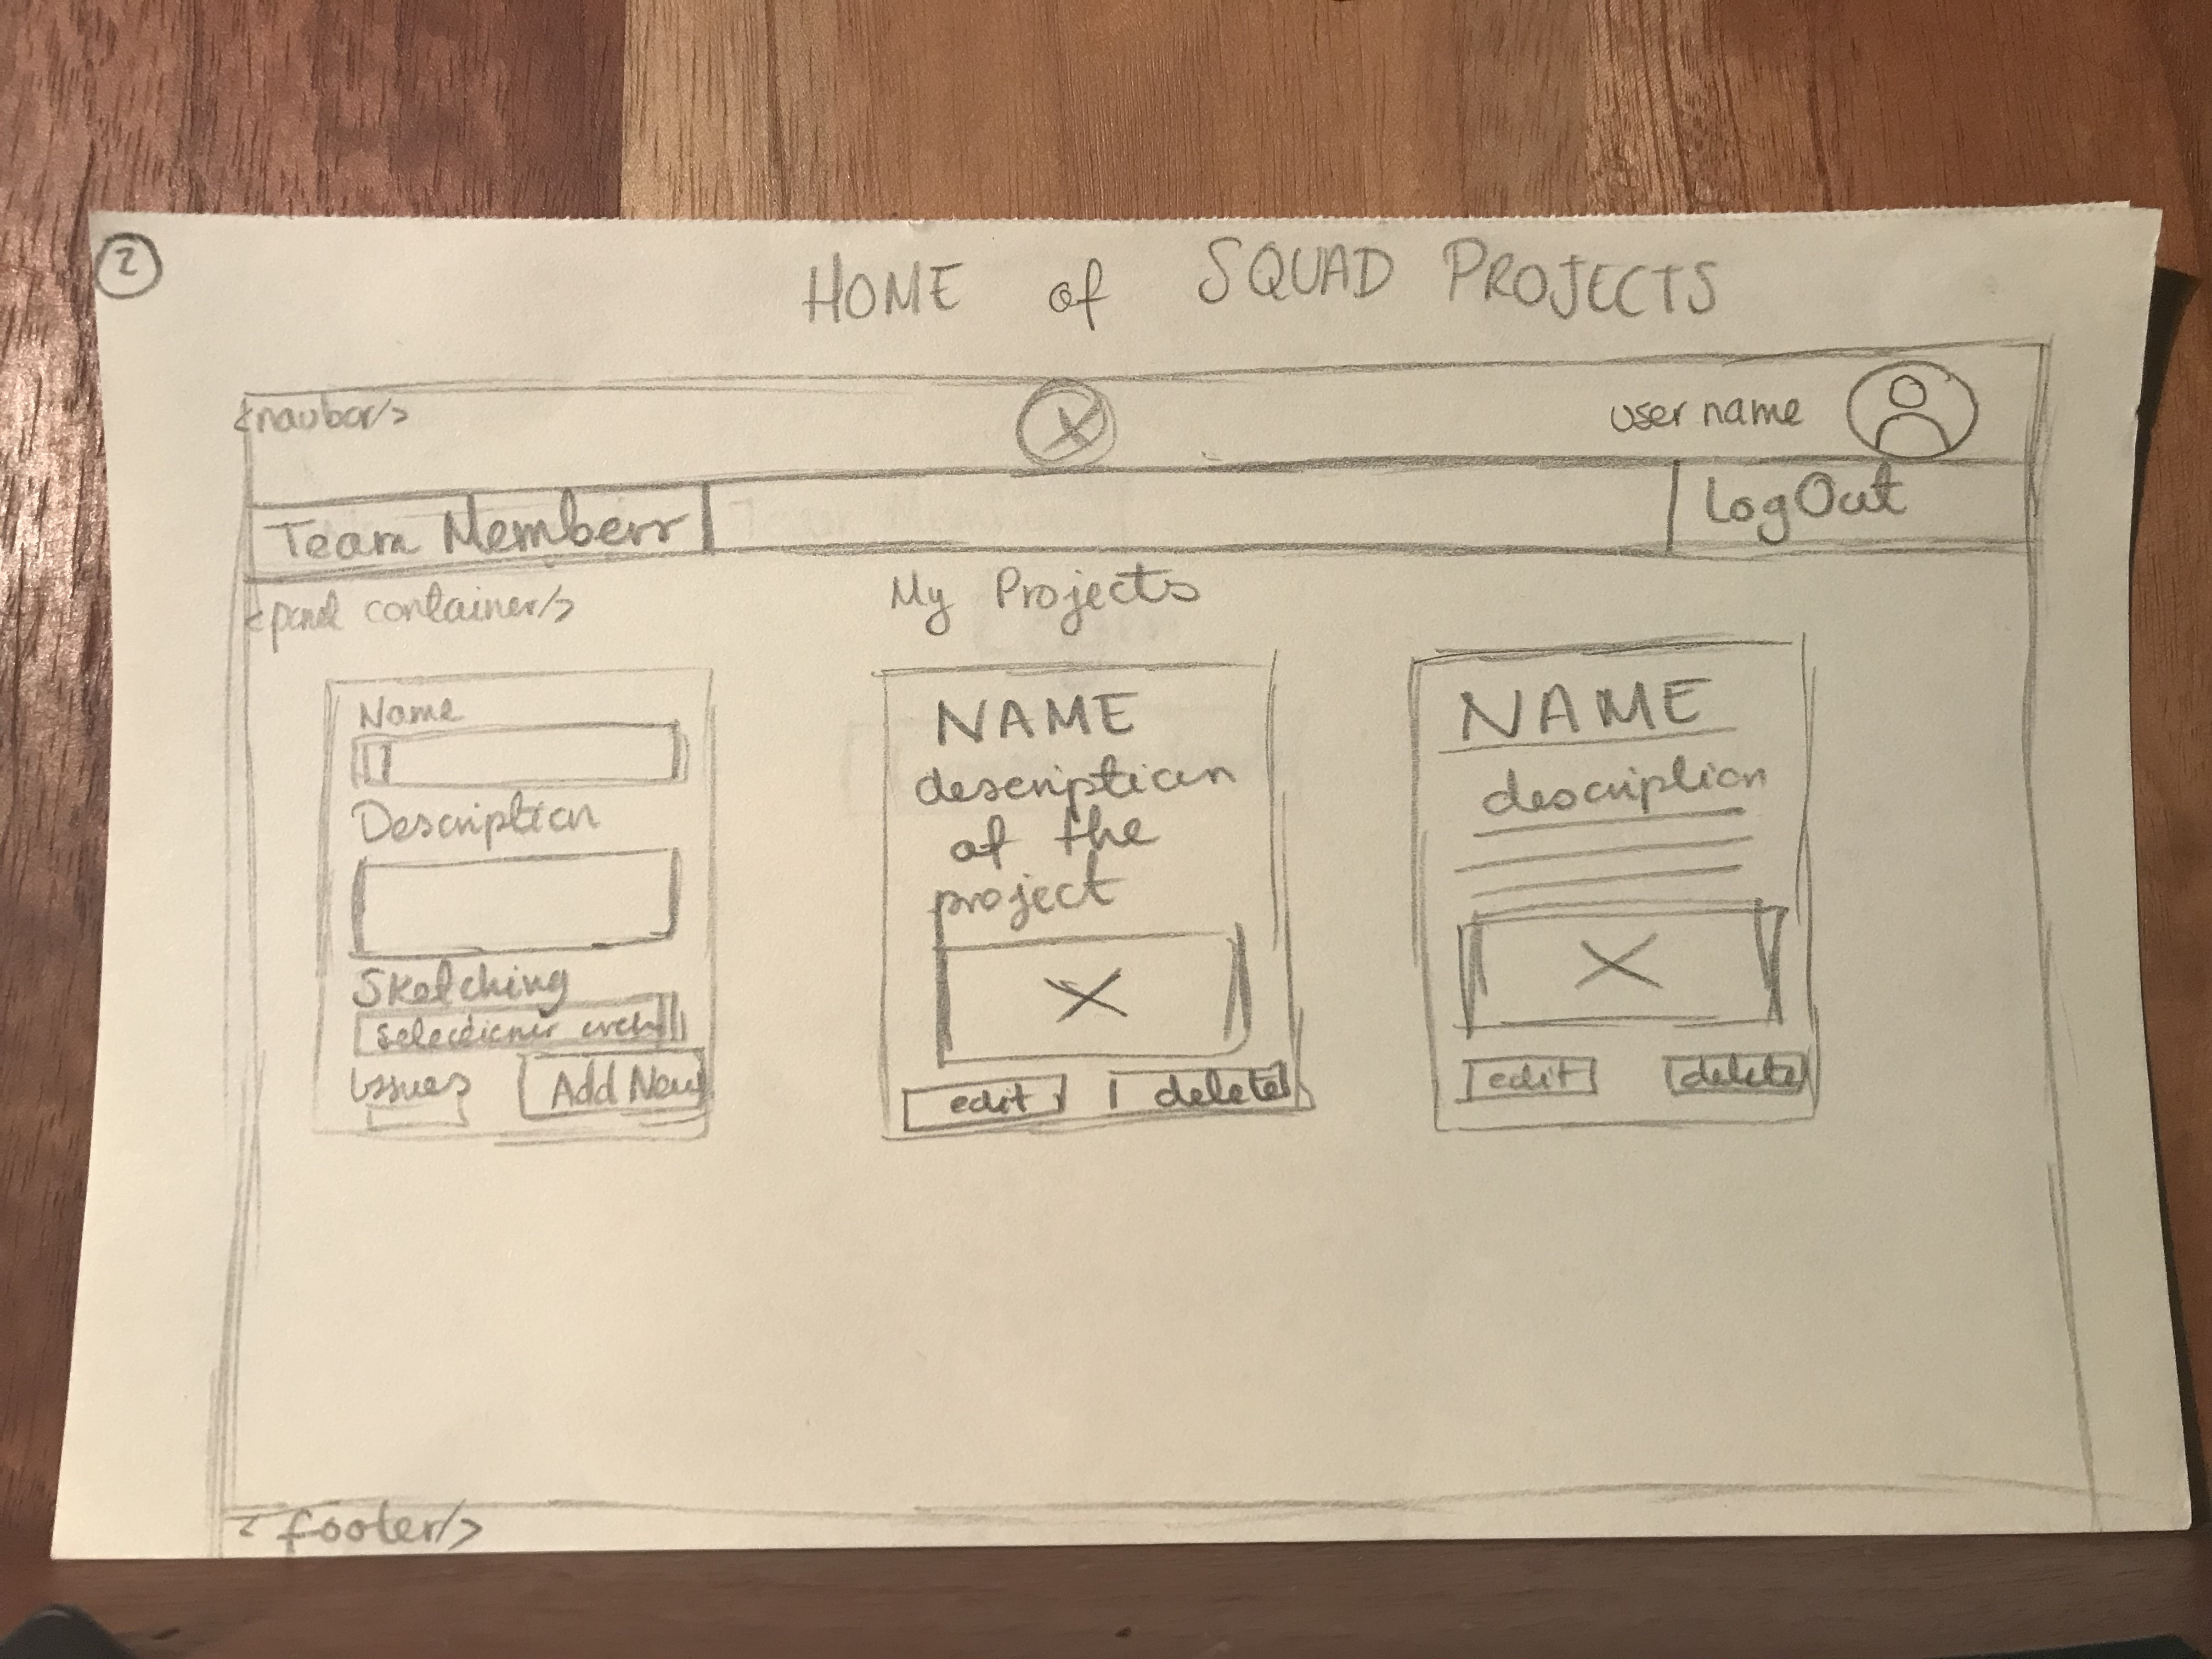 2
HOME of SQUAD PROJECTS
<navbar/>
user name
Team Members
LogOut
<panel container/>
My Projects
Name
Description
Sketching
Issues
Add New
NAME
description
of the
project
edit
delete
NAME
description
edit
delete
<footer/>